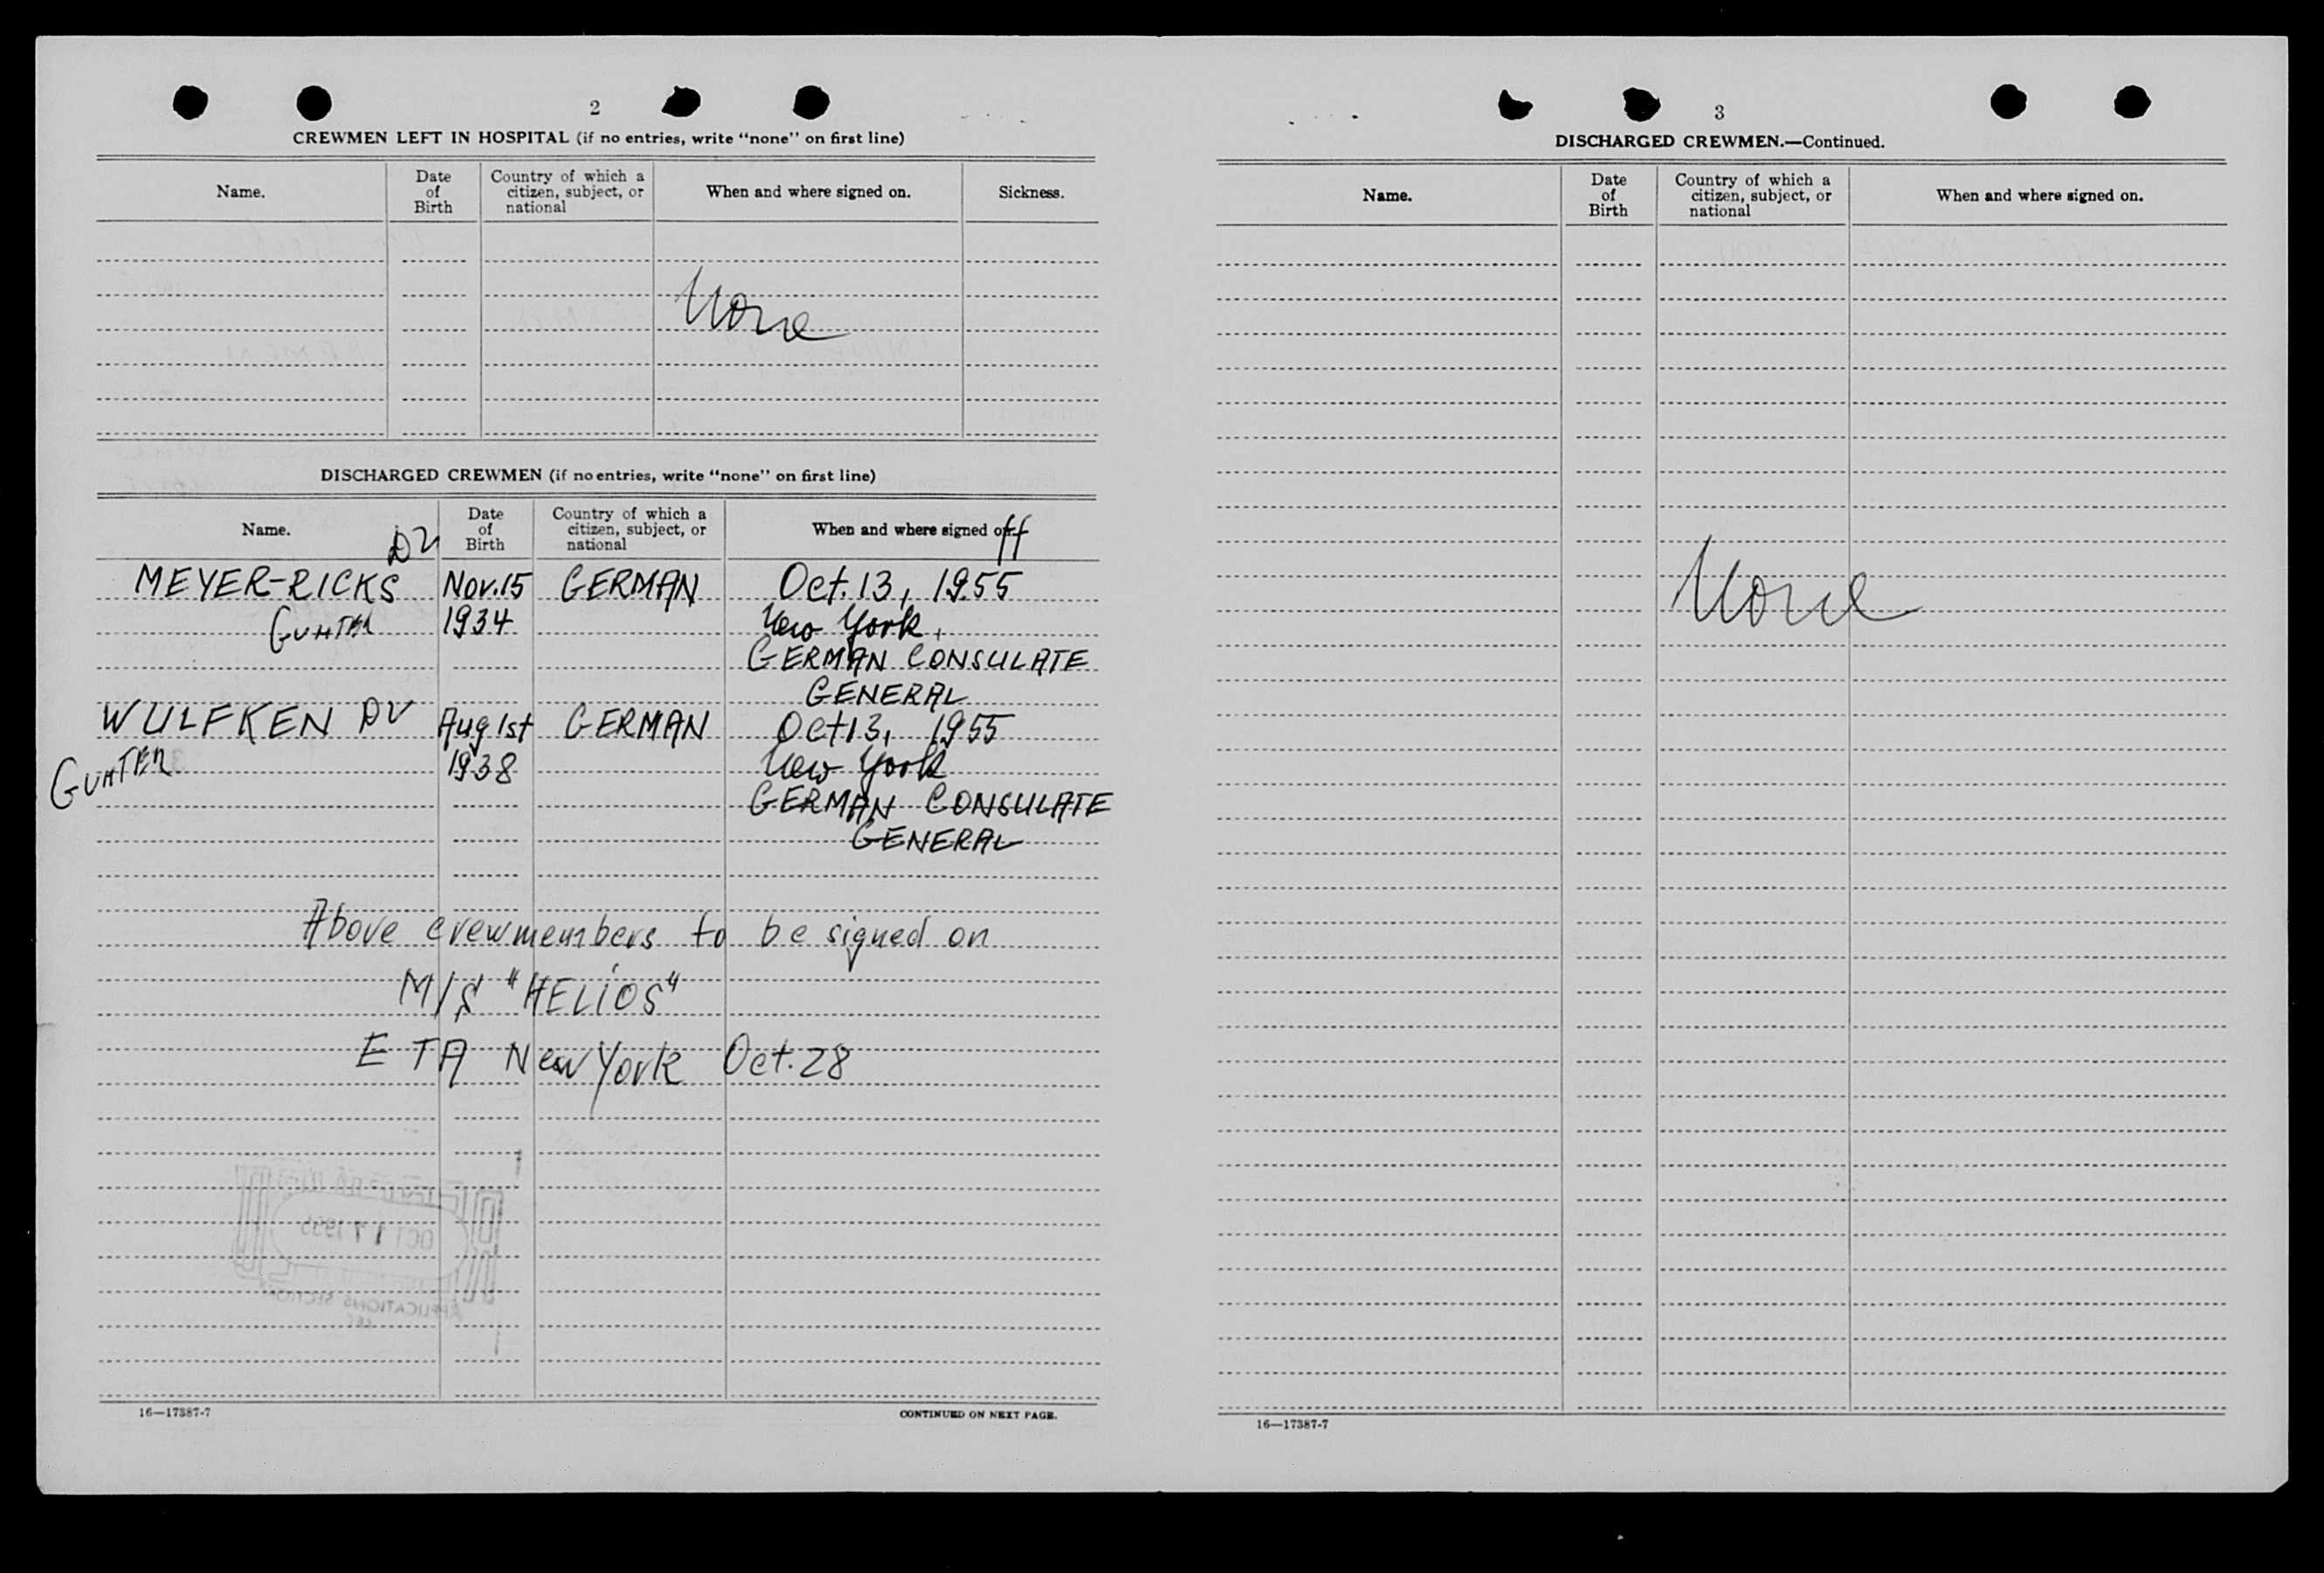 2
CREWMEN LEFT IN HOSPITAL (if no entries, write "none" on first line)
Name.
Date of Birth
Country of which a citizen, subject, or national
When and where signed on.
Sickness.
None
DISCHARGED CREWMEN (if no entries, write "none" on first line)
Name.
Date of Birth
Country of which a citizen, subject, or national
When and where signed off
DV
MEYER-RICKS Nov.15 GERMAN Oct.13, 1955
GUNTER 1934 New York,
GERMAN CONSULATE
GENERAL
WULFKEN DV Aug 1st GERMAN Oct 13, 1955
GUNTER 1938 New York
GERMAN CONSULATE
GENERAL
Above crewmembers to be signed on
M/S "HELIOS"
ETA New York Oct. 28
OCT 17 1955
APPLICATIONS SECTION
16—17387-7
CONTINUED ON NEXT PAGE.
3
DISCHARGED CREWMEN.—Continued.
Name.
Date of Birth
Country of which a citizen, subject, or national
When and where signed on.
None
16—17387-7